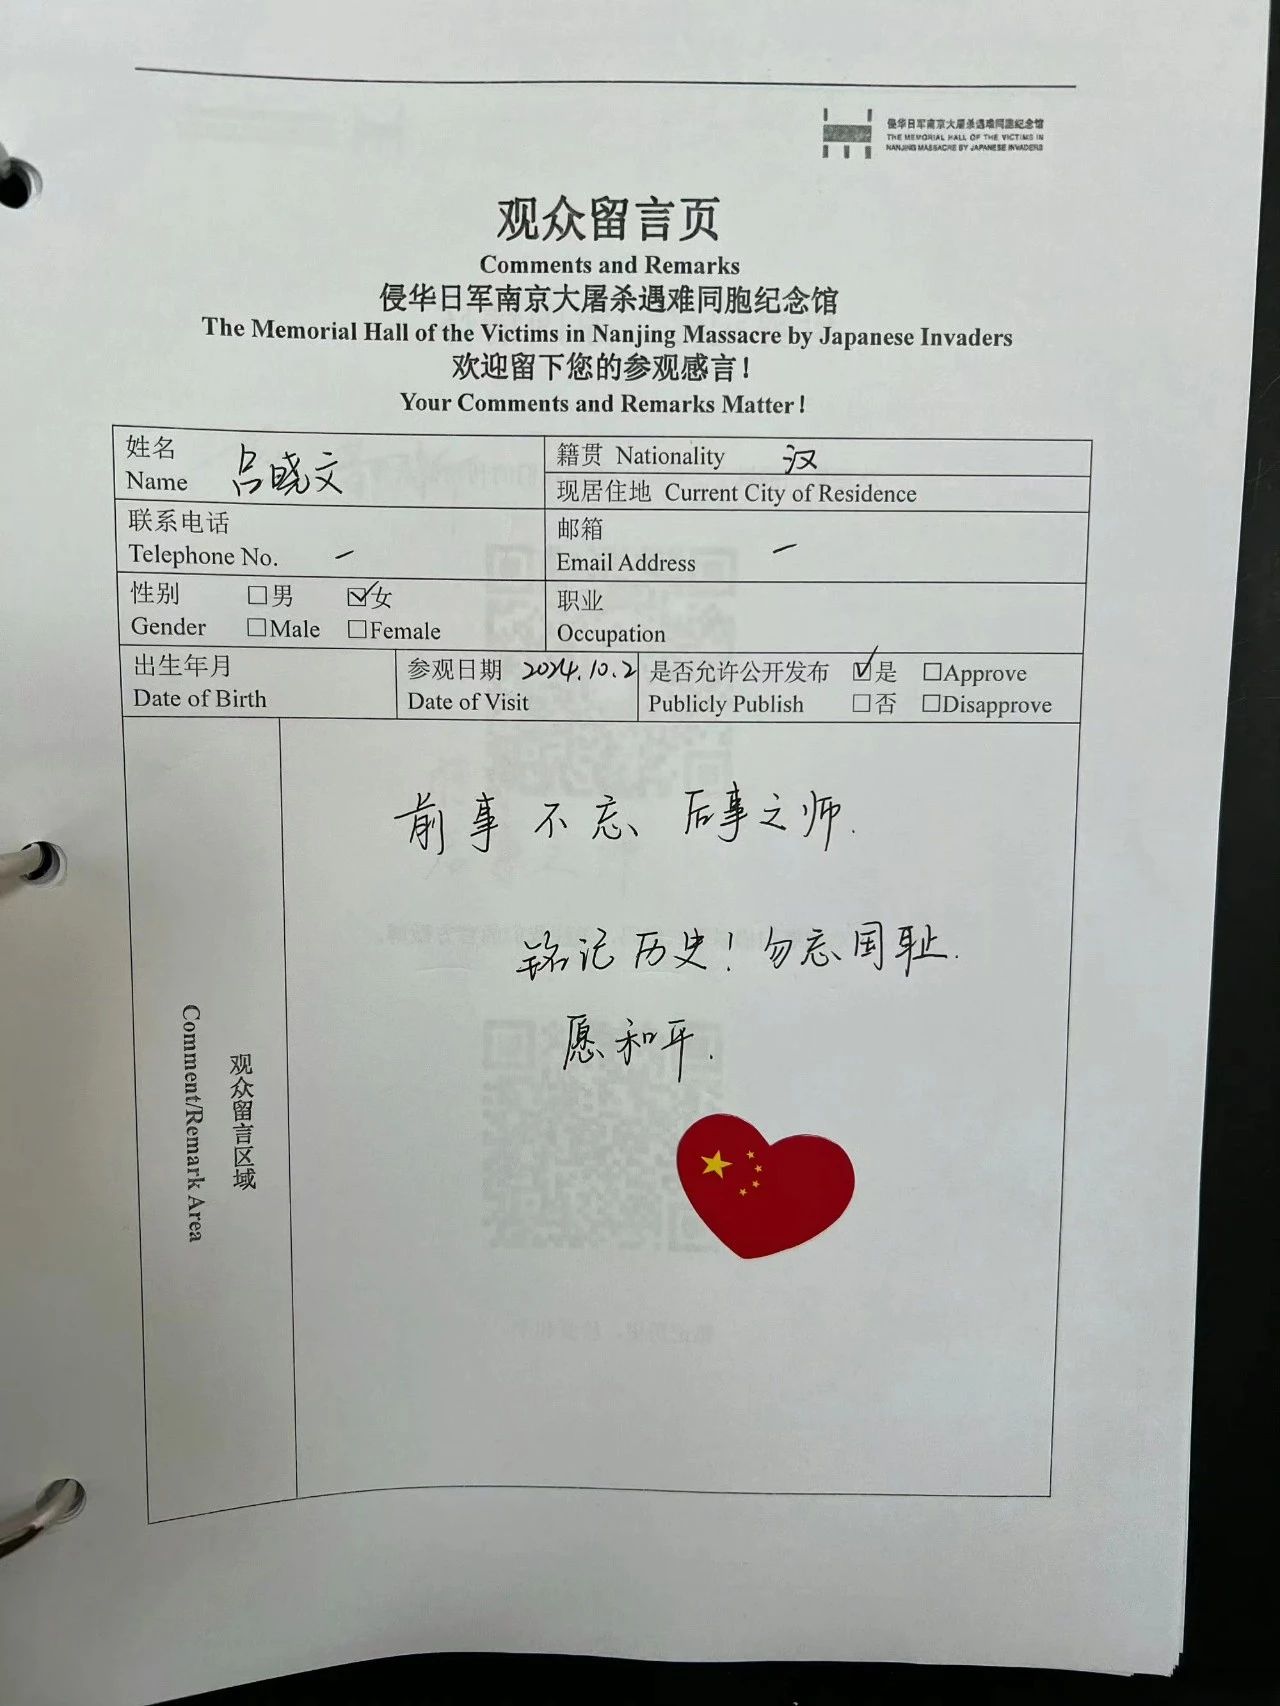 侵华日军南京大屠杀遇难同胞纪念馆
THE MEMORIAL HALL OF THE VICTIMS IN
NANJING MASSACRE BY JAPANESE INVADERS
观众留言页
Comments and Remarks
侵华日军南京大屠杀遇难同胞纪念馆
The Memorial Hall of the Victims in Nanjing Massacre by Japanese Invaders
欢迎留下您的参观感言！
Your Comments and Remarks Matter!
姓名
Name 吕晓文
籍贯 Nationality 汉
现居住地 Current City of Residence
联系电话
Telephone No. —
邮箱
Email Address —
性别 □男 ☑女
Gender □Male □Female
职业
Occupation
出生年月
Date of Birth
参观日期 2024.10.2
Date of Visit
是否允许公开发布 ☑是 □Approve
Publicly Publish □否 □Disapprove
观众留言区域
Comment/Remark Area
前事不忘、后事之师.
铭记历史！勿忘国耻.
愿和平.